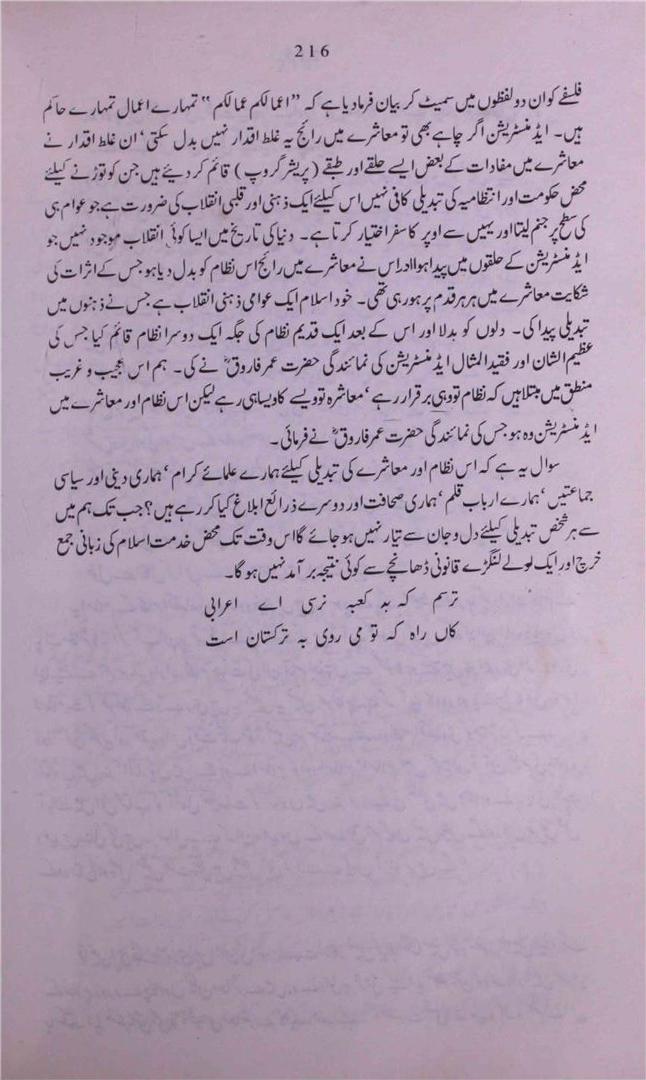 216
فلسفے کو ان دو لفظوں میں سمیٹ کر بیان فرمادیا ہے کہ ”اعمالکم عمالکم“ تمہارے اعمال تمہارے حاکم
ہیں۔ ایڈمنسٹریشن اگر چاہے بھی تو معاشرے میں رائج یہ غلط اقدار نہیں بدل سکتی‘ ان غلط اقدار نے
معاشرے میں مفادات کے بعض ایسے حلقے اور طبقے (پریشر گروپ) قائم کر دیئے ہیں جن کو توڑنے کیلئے
محض حکومت اور انتظامیہ کی تبدیلی کافی نہیں اس کیلئے ایک ذہنی اور قلبی انقلاب کی ضرورت ہے جو عوام ہی
کی سطح پر جنم لیتا اور یہیں سے اوپر کا سفر اختیار کرتا ہے۔ دنیا کی تاریخ میں ایسا کوئی انقلاب موجود نہیں جو
ایڈمنسٹریشن کے حلقوں میں پیدا ہوا اور اس نے معاشرے میں رائج اس نظام کو بدل دیا ہو جس کے اثرات کی
شکایت معاشرے میں ہر ہر قدم پر ہو رہی تھی۔ خود اسلام ایک عوامی ذہنی انقلاب ہے جس نے ذہنوں میں
تبدیلی پیدا کی۔ دلوں کو بدلا اور اس کے بعد ایک قدیم نظام کی جگہ ایک دوسرا نظام قائم کیا جس کی
عظیم الشان اور فقید المثال ایڈمنسٹریشن کی نمائندگی حضرت عمر فاروقؓ نے کی۔ ہم اس عجیب و غریب
منطق میں مبتلا ہیں کہ نظام تو وہی برقرار رہے‘ معاشرہ تو ویسے کا ویسا ہی رہے لیکن اس نظام اور معاشرے میں
ایڈمنسٹریشن وہ ہو جس کی نمائندگی حضرت عمر فاروقؓ نے فرمائی۔
سوال یہ ہے کہ اس نظام اور معاشرے کی تبدیلی کیلئے ہمارے علمائے کرام‘ ہماری دینی اور سیاسی
جماعتیں‘ ہمارے ارباب قلم‘ ہماری صحافت اور دوسرے ذرائع ابلاغ کیا کر رہے ہیں؟ جب تک ہم میں
سے ہر شخص تبدیلی کیلئے دل و جان سے تیار نہیں ہو جائے گا اس وقت تک محض خدمت اسلام کی زبانی جمع
خرچ اور ایک لولے لنگڑے قانونی ڈھانچے سے کوئی نتیجہ برآمد نہیں ہو گا۔
ترسم کہ بہ کعبہ نرسی اے اعرابی
کاں راہ کہ تو می روی بہ ترکستان است